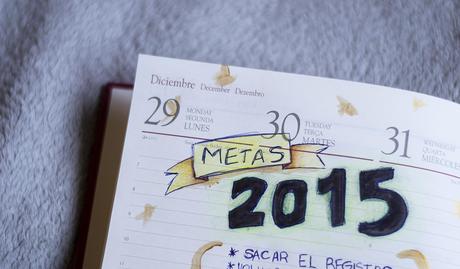 Diciembre December Dezembro
29 MONDAY SEGUNDA LUNES
30 TUESDAY TERÇA MARTES
31 WEDNESDAY QUARTA MIÉRCOLES
METAS
2015
* SACAR EL REGISTRO